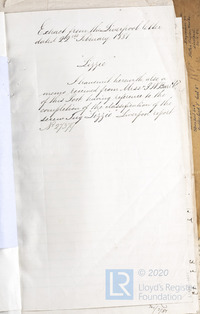 Extract from the Liverpool letter
dated 29th February 1888
"Lizzie"
I transmit herewith also a
memo received from Messrs
of this Port having reference to the
completion of the classification of the
Screw Tug "Lizzie" Liverpool report
No
© 2020
LR
Lloyd's Register
Foundation